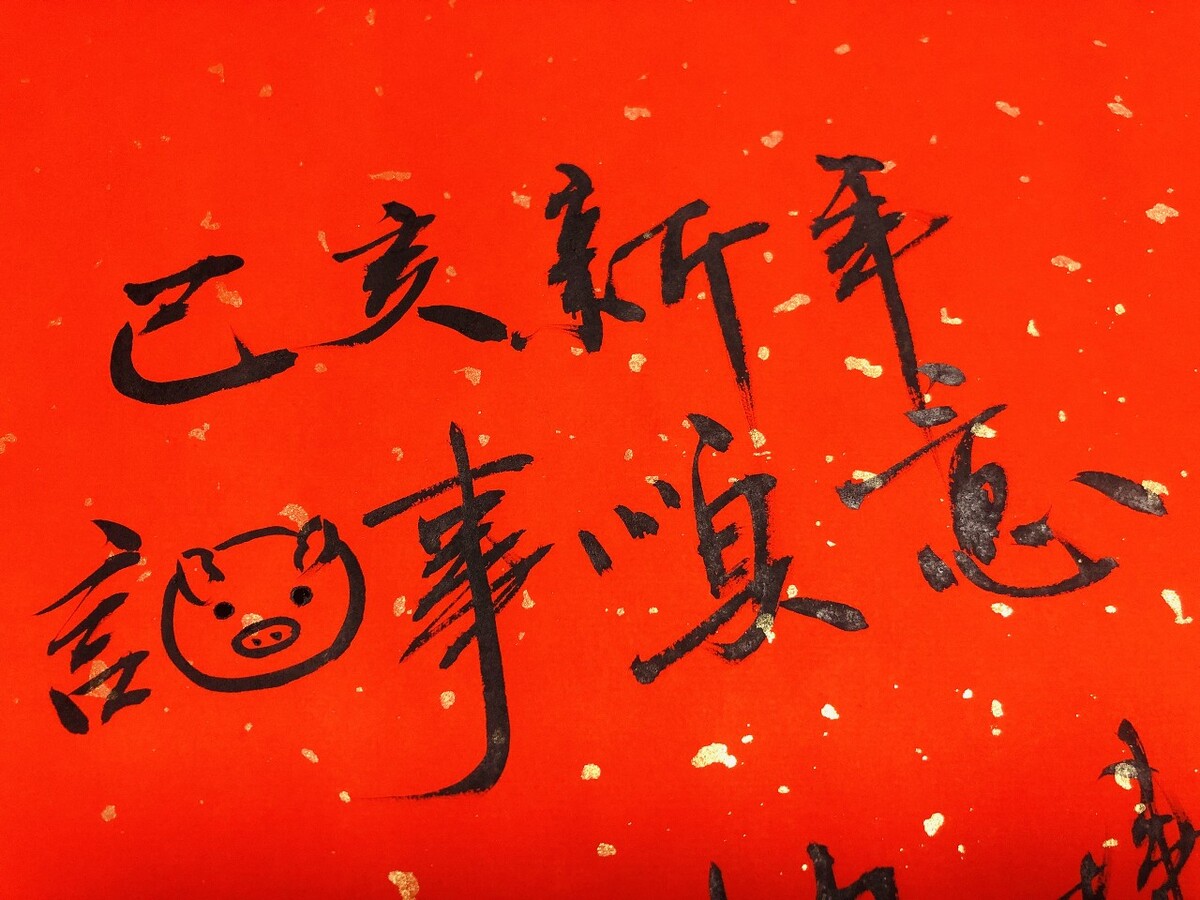 己亥新年
言事順意